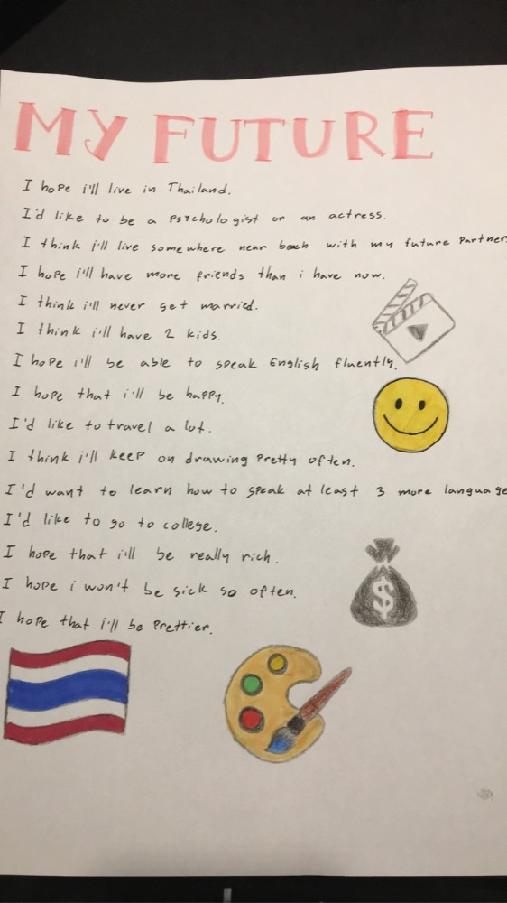 MY FUTURE
I hope i'll live in Thailand.
I'd like to be a psychologist or an actress.
I think i'll live somewhere near beach with my future partner.
I hope i'll have more friends than i have now.
I think i'll never get married.
I think i'll have 2 kids.
I hope i'll be able to speak English fluently.
I hope that i'll be happy.
I'd like to travel a lot.
I think i'll keep on drawing pretty often.
I'd want to learn how to speak at least 3 more language
I'd like to go to college.
I hope that i'll be really rich.
I hope i won't be sick so often.
I hope that i'll be prettier.
$